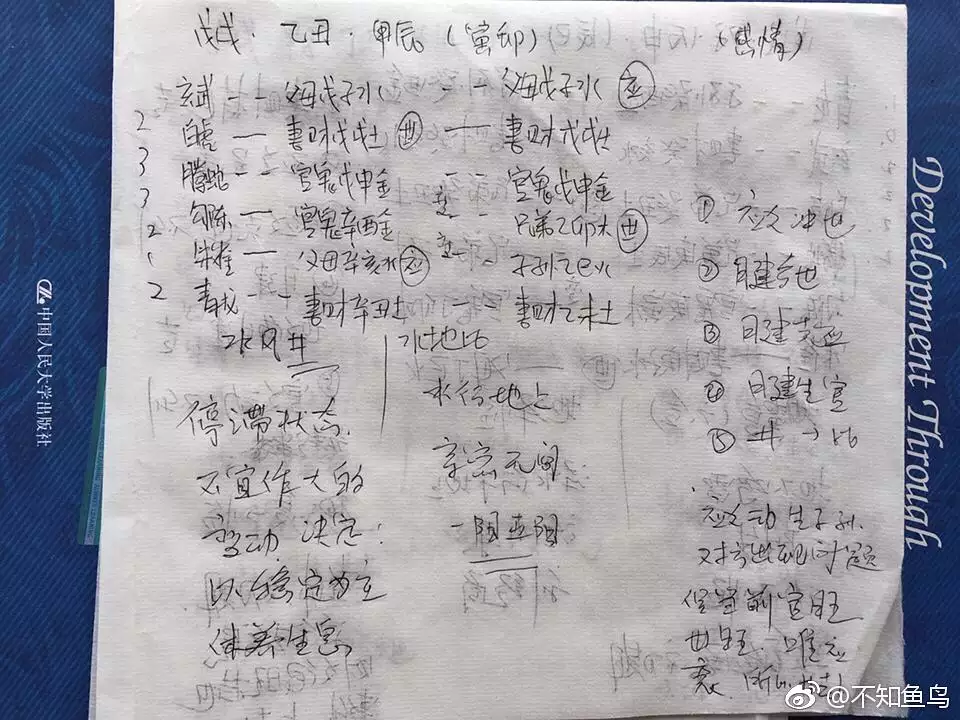 戊戌·乙丑·甲辰(寅卯) (感情)
玄武 -- 父母戊子水 -- 父母戊子水 应
2 白虎 — 妻财戊戌土 世 — 妻财戊戌土
3 腾蛇 -- 官鬼戊申金 -- 官鬼戊申金
3 勾陈 — 官鬼辛酉金 -- 兄弟乙卯木 世
2 朱雀 — 父母辛亥水 应 -- 子孙乙巳火
2 青龙 -- 妻财辛丑土 妻财乙未土
水风井
水地比
停滞状态
不宜作大的
变动 决定:
以稳定为主
休养生息
水行地上
亲密无间
一阳五阴
① 应爻冲世
② 日建合世
③ 月建克应
④ 月建生官
⑤ 井→比
应爻动生子孙.
对方出现问题
官旺
世旺. 唯应
衰.
Development Through
中国人民大学出版社
@不知鱼鸟